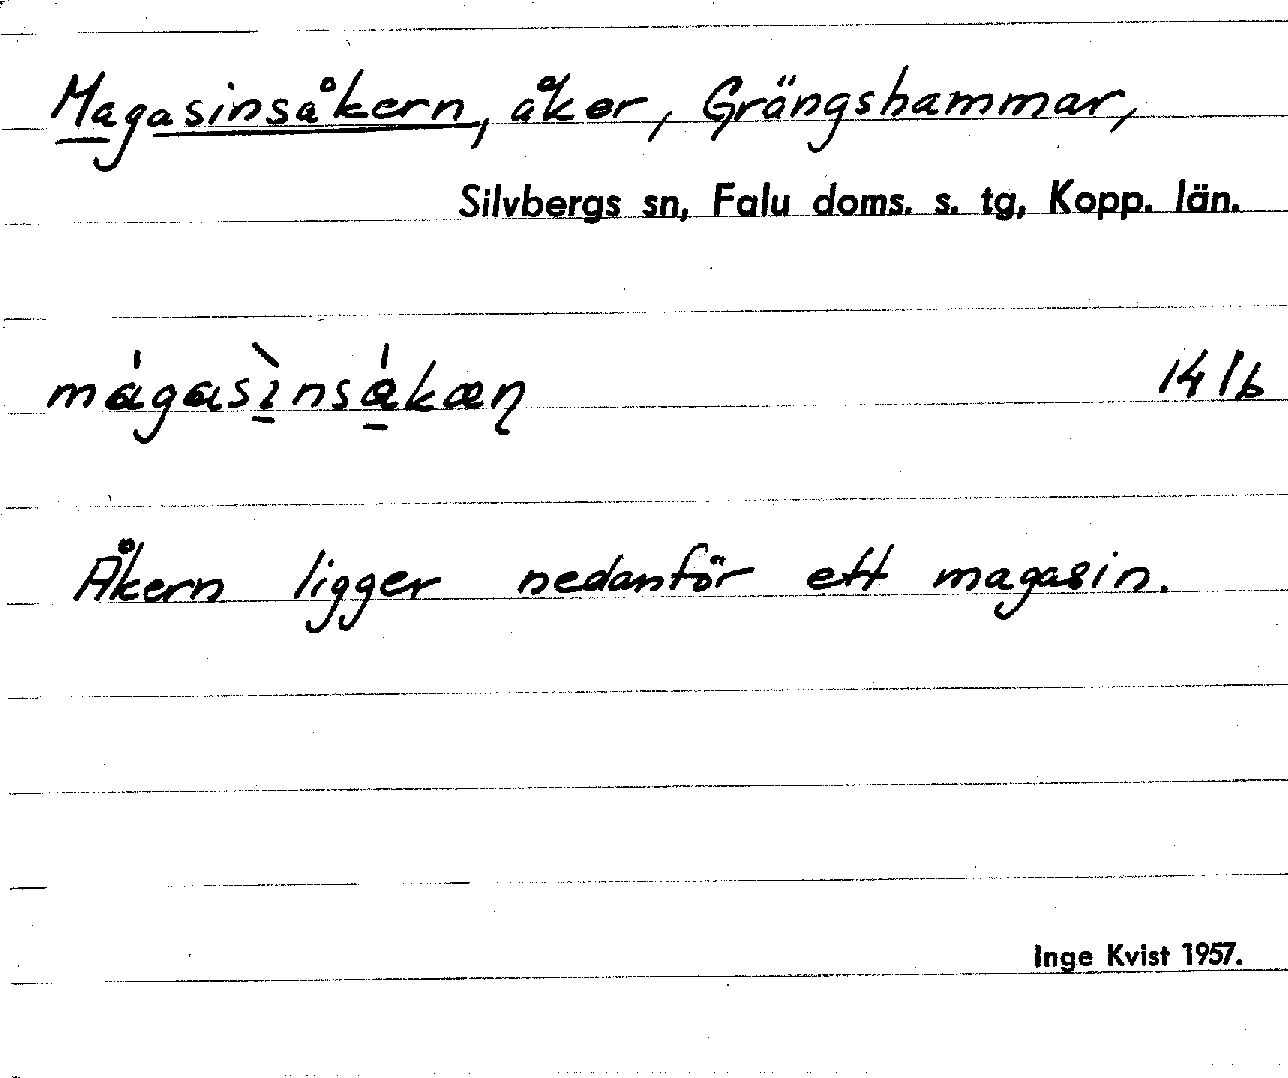 Magasinsåkern, åker, Grängshammar,
Silvbergs sn, Falu doms. s. tg, Kopp. län.
14 1b
Åkern ligger nedanför ett magasin.
Inge Kvist 1957.